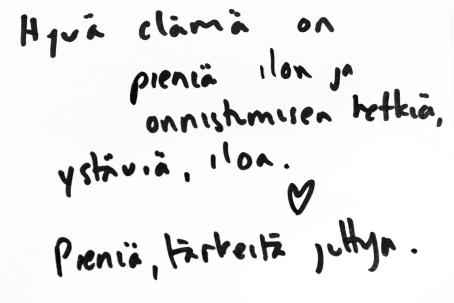 Hyvä elämä on
pieniä ilon ja
onnistumisen hetkiä,
ystäviä, iloa.
Pieniä, tärkeitä juttuja.